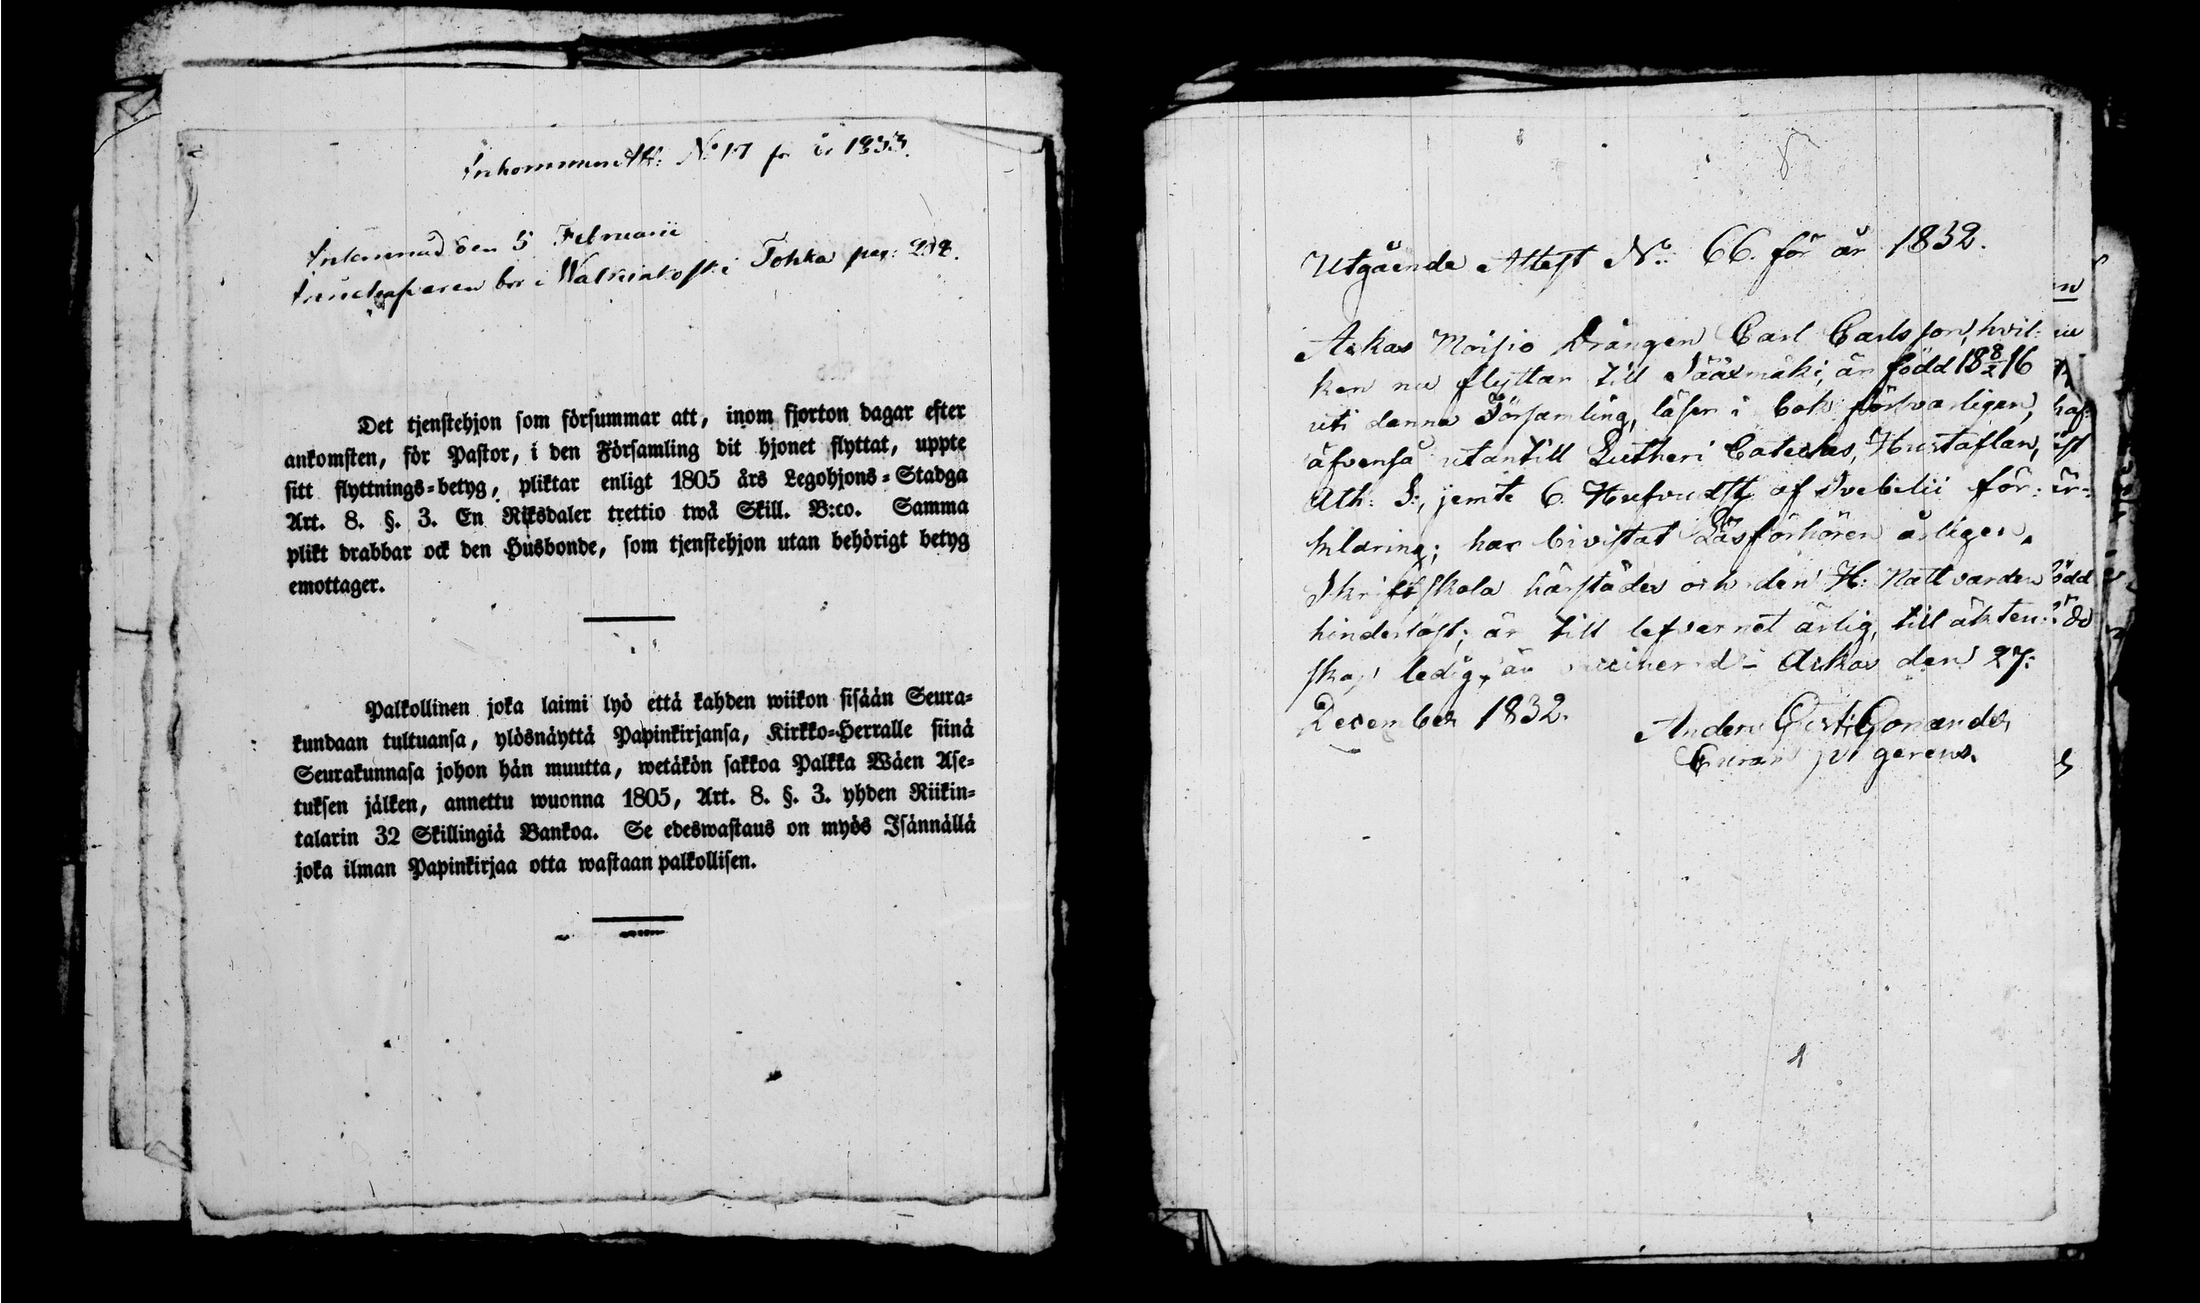 Inkommen Att: No 17 för år 1833.
Inlemnad den 5 Februarii
Innehafvaren bor i Walkeakoski Tohka pag: 212.
Det tjenstehjon som försummar att, inom fjorton dagar efter
ankomsten, för Pastor, i den Församling dit hjonet flyttat, uppte
sitt flyttnings-betyg, pliktar enligt 1805 års Legohjons-Stadga
Art. 8. §. 3. En Riksdaler trettio twå Skill. B:co. Samma
plikt drabbar ock den Husbonde, som tjenstehjon utan behörigt betyg
emottager.
Palkollinen joka laimi lyö että kahden wiikon sisään Seura-
kundaan tultuansa, ylösnäyttä Papinkirjansa, Kirkko-Herralle siinä
Seurakunnasa johon hän muutta, wetäkön sakkoa Palkka Wäen Ase-
tuksen jälken, annettu wuonna 1805, Art. 8. §. 3. yhden Riikin-
talarin 32 Skillingiä Bankoa. Se edeswastaus on myös Isännällä
joka ilman Papinkirjaa otta wastaan palkollisen.
Utgående Attest No: 66. för år 1832.
Akas Moisio Drängen Carl Carlsson, hvil-
ken nu flyttar till Sääxmäki, är född 18 8/2 16
uti denna Församling, läser i bok försvarligen,
äfvenså utantill Lutheri Cateches, Hustaflan,
Ath: S:, jemte 6. Hufvudst. af Svebelii för-
klaring; har bivistat Läsförhören årligen,
Skriftskola härstädes och den H: Nattvarden
hinderlöst; är till lefvernet ärlig, till äkten-
skap ledig, är vaccinerad - Akas den 27:
December 1832.
Anders Gonander